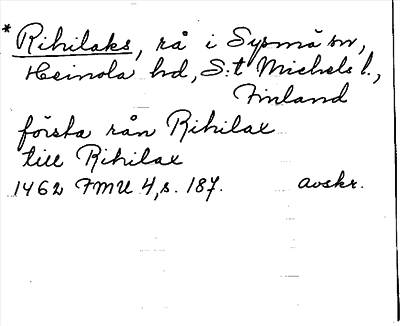 * Rihilaks, rå i Sysmä sn,
Heinola hd, S:t Michels l.,
Finland
första rån Rihilax
till Rihilax
1462 FMU 4, s. 187. avskr.